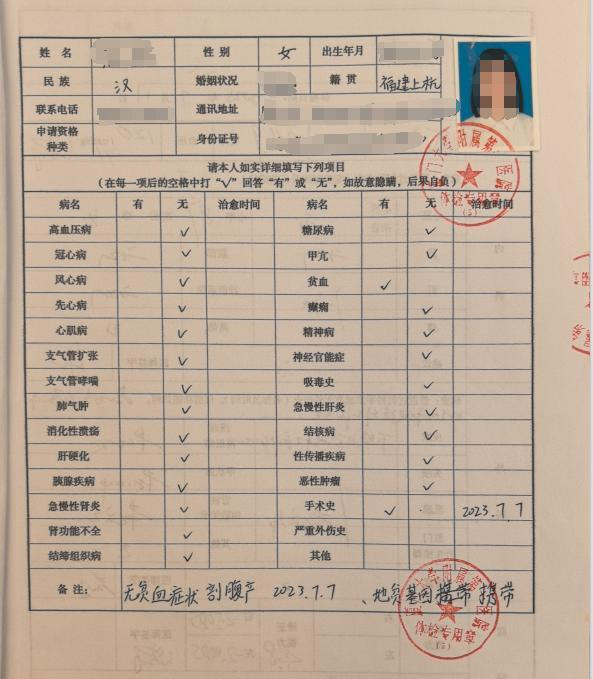 姓 名 性 别 女 出生年月
民 族 汉 婚姻状况 籍 贯 福建上杭
联系电话 通讯地址
申请资格种类 身份证号
请本人如实详细填写下列项目
(在每一项后的空格中打“√”回答“有”或“无”,如故意隐瞒,后果自负)
病名 有 无 治愈时间 病名 有 无 治愈时间
高血压病 ✓ 糖尿病 ✓
冠心病 ✓ 甲亢 ✓
风心病 ✓ 贫血 ✓
先心病 ✓ 癫痫 ✓
心肌病 ✓ 精神病 ✓
支气管扩张 ✓ 神经官能症 ✓
支气管哮喘 ✓ 吸毒史 ✓
肺气肿 ✓ 急慢性肝炎 ✓
消化性溃疡 ✓ 结核病 ✓
肝硬化 ✓ 性传播疾病 ✓
胰腺疾病 ✓ 恶性肿瘤 ✓
急慢性肾炎 ✓ 手术史 ✓ 2023.7.7
肾功能不全 ✓ 严重外伤史
结缔组织病 ✓ 其他
备 注: 无贫血症状 剖腹产 2023.7.7 、地贫基因携带 携带
体检专用章
(5)
体检专用章
(5)